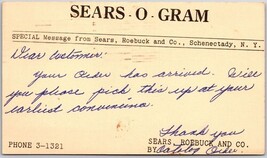 SEARS-O-GRAM
SPECIAL Message from Sears, Roebuck and Co., Schenectady, N. Y.
Dear Customer:
Your Order has arrived. Will
you please pick this up at your
earliest convenience.
Thank you
SEARS, ROEBUCK AND CO.
PHONE 3-1321
BY Catalog Order